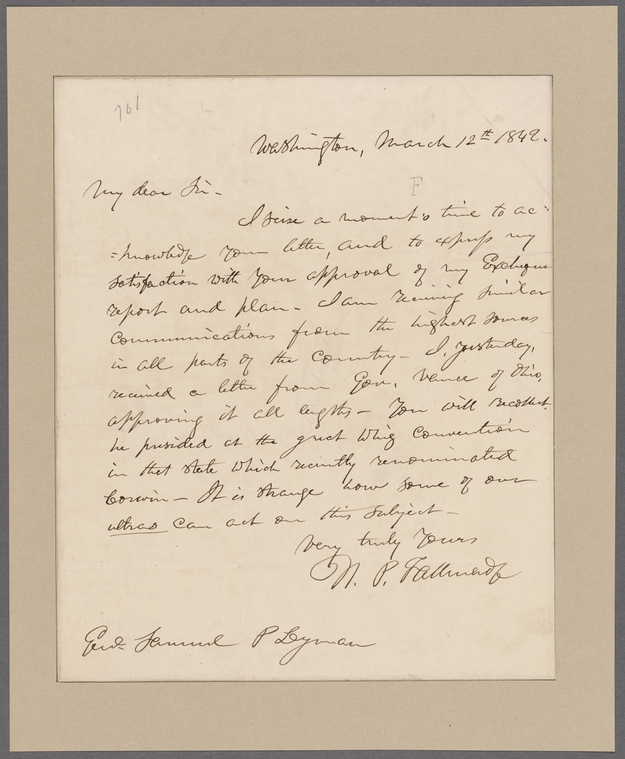 701
Washington, March 12th 1842.
F
My dear Sir -
I seize a moment's time to ac=
=knowledge your letter, and to express my
satisfaction with your approval of my Exchequer
report and plan - I am receiving similar
communications from the highest sources
in all parts of the Country - I, yesterday,
received a letter from Gov. Vance of Ohio,
approving it all lengths - You will recollect,
he presided at the great Whig Convention
in that State which recently renominated
Corwin - It is strange how some of our
ultras can act on this subject -
Very truly Yours
N. P. Tallmadge
Samuel P Lyman